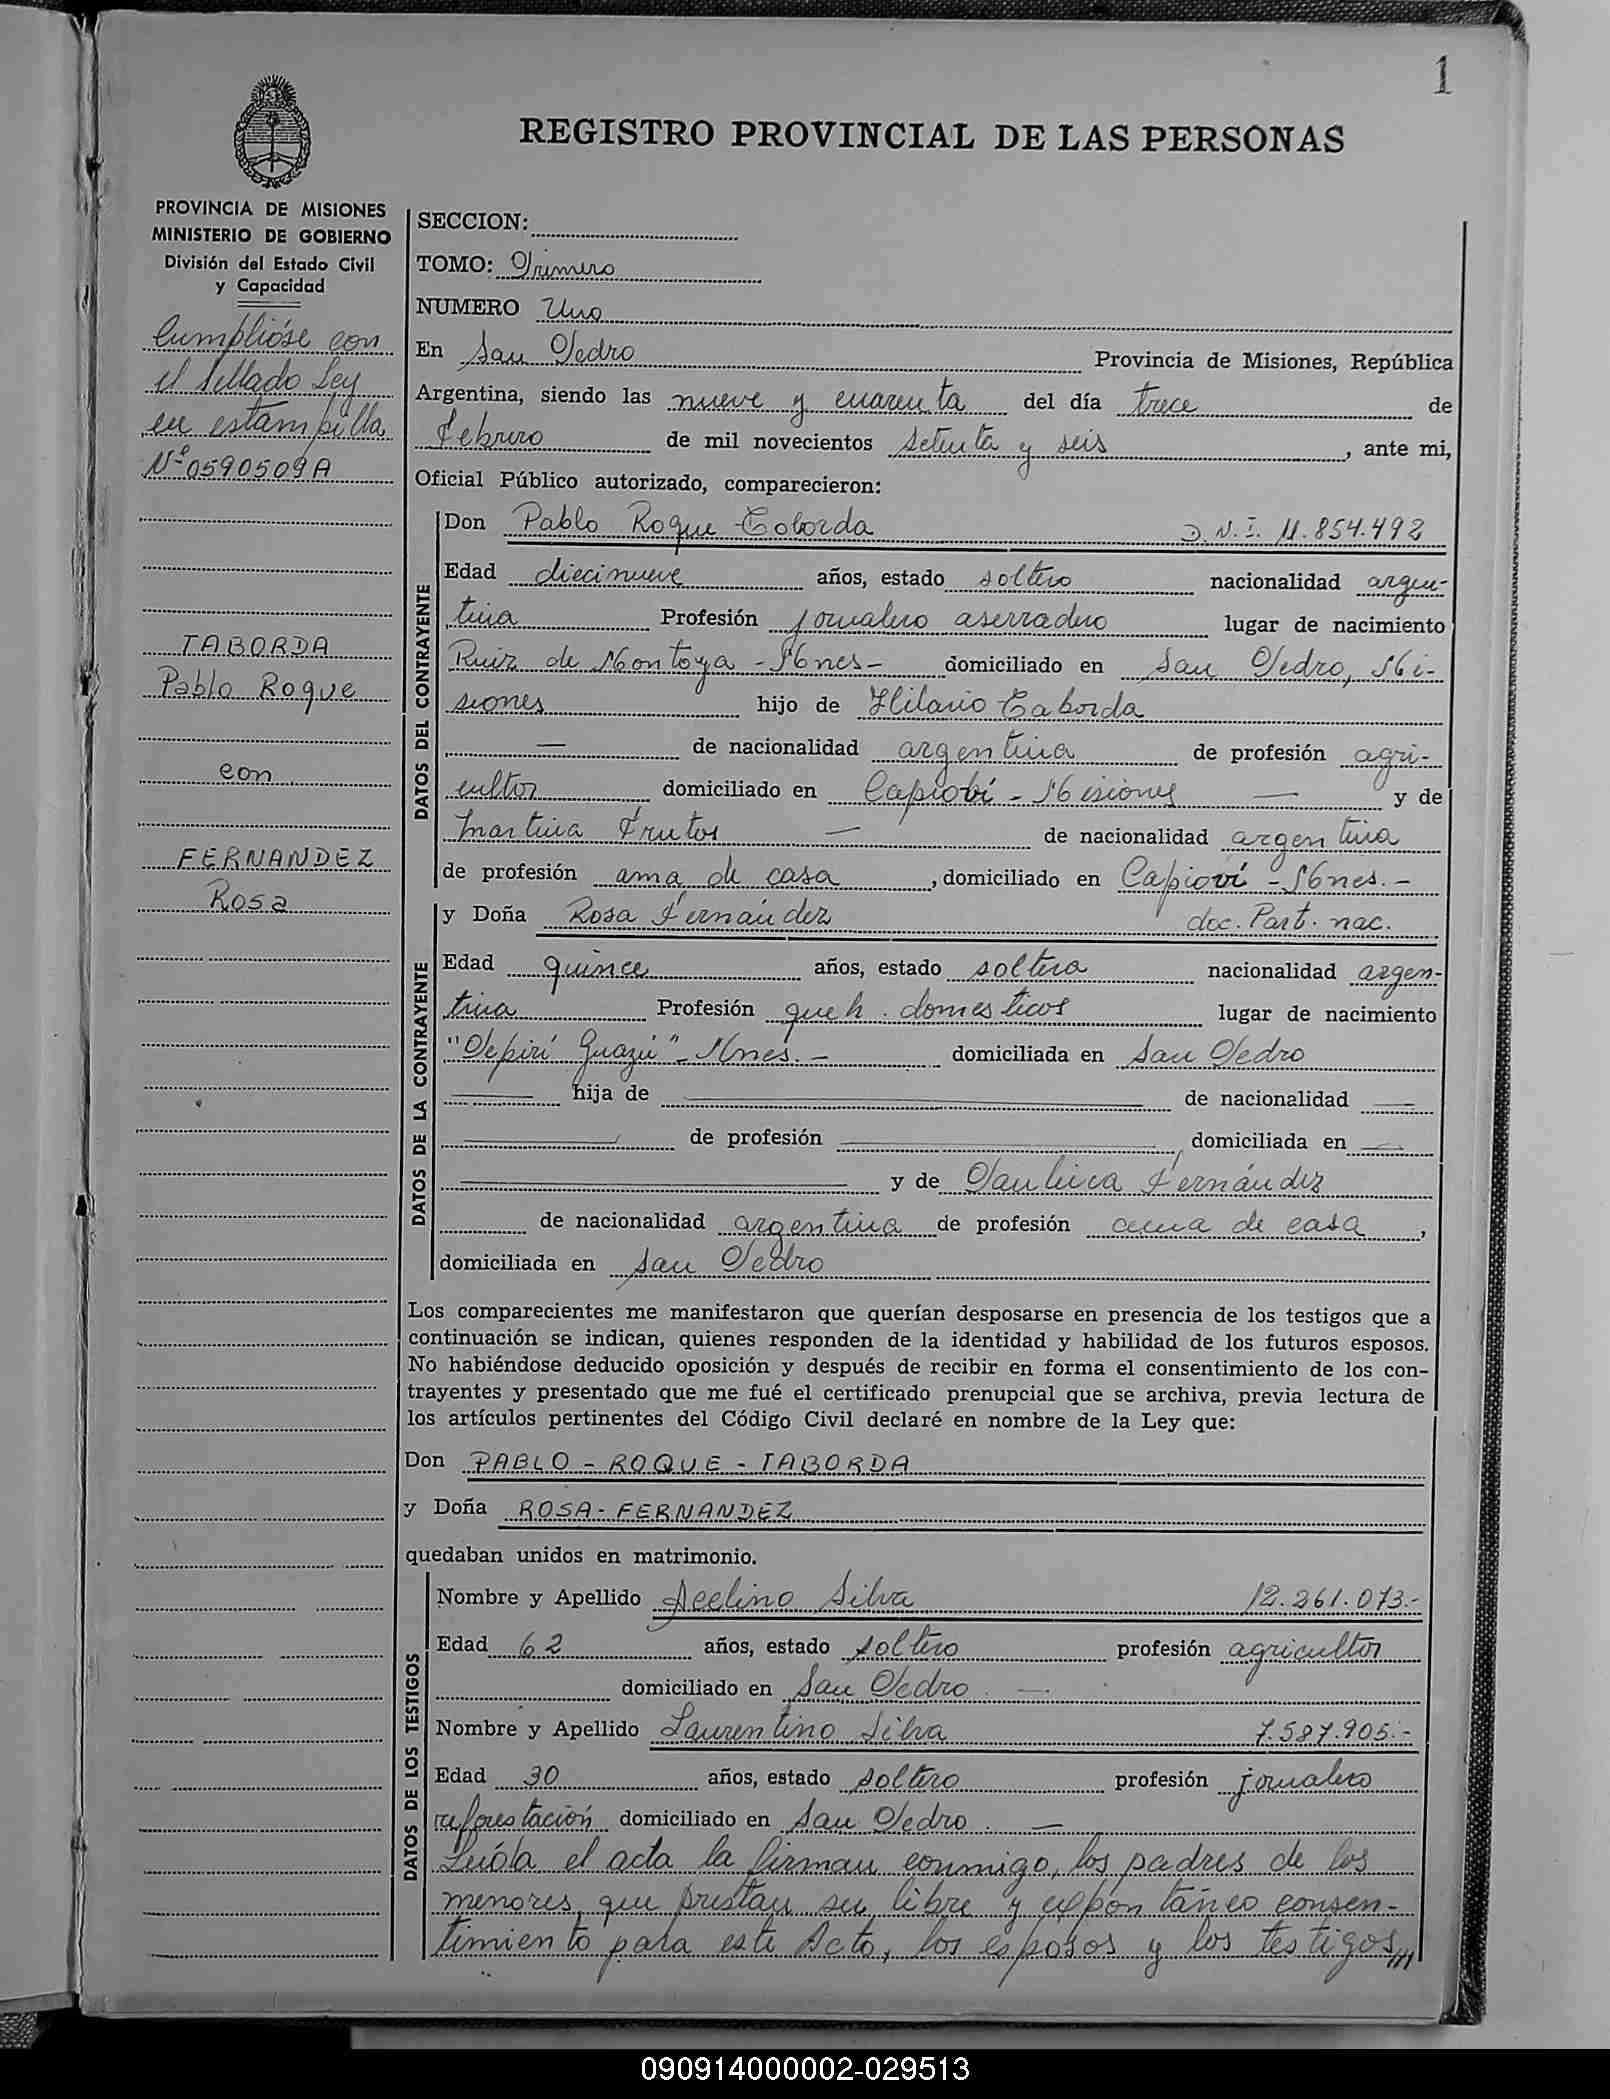 1
REGISTRO PROVINCIAL DE LAS PERSONAS
PROVINCIA DE MISIONES
MINISTERIO DE GOBIERNO
División del Estado Civil
y Capacidad
Cumplióse con
el Sellado Ley
en estampilla
Nº 0590509A
TABORDA
Pablo Roque
con
FERNANDEZ
Rosa
SECCION:
TOMO: Primero
NUMERO Uno
En San Pedro Provincia de Misiones, República
Argentina, siendo las nueve y cuarenta del día trece de
Febrero de mil novecientos setenta y seis, ante mi,
Oficial Público autorizado, comparecieron:
DATOS DEL CONTRAYENTE
Don Pablo Roque Taborda D.N.I. 11.854.492
Edad diecinueve años, estado soltero nacionalidad argen-
tina Profesión jornalero aserradero lugar de nacimiento
Ruiz de Montoya - Mnes - domiciliado en San Pedro, Mi-
siones hijo de Hilario Taborda
— de nacionalidad argentina de profesión agri-
cultor domiciliado en Capioví - Misiones — y de
Martina Frutos — de nacionalidad argentina
de profesión ama de casa, domiciliado en Capioví - Mnes. -
DATOS DE LA CONTRAYENTE
y Doña Rosa Fernández doc. Part. nac.
Edad quince años, estado soltera nacionalidad argen-
tina Profesión queh. domesticos lugar de nacimiento
"Pepirí Guazú" - Mnes. - domiciliada en San Pedro
— hija de — de nacionalidad —
— de profesión — domiciliada en —
— y de Paulina Fernández
de nacionalidad argentina de profesión ama de casa,
domiciliada en San Pedro
Los comparecientes me manifestaron que querían desposarse en presencia de los testigos que a
continuación se indican, quienes responden de la identidad y habilidad de los futuros esposos.
No habiéndose deducido oposición y después de recibir en forma el consentimiento de los con-
trayentes y presentado que me fué el certificado prenupcial que se archiva, previa lectura de
los artículos pertinentes del Código Civil declaré en nombre de la Ley que:
Don PABLO - ROQUE - TABORDA
y Doña ROSA - FERNANDEZ
quedaban unidos en matrimonio.
DATOS DE LOS TESTIGOS
Nombre y Apellido Acelino Silva 12.261.073.-
Edad 62 años, estado soltero profesión agricultor
domiciliado en San Pedro. —
Nombre y Apellido Laurentino Silva 7.587.905.-
Edad 30 años, estado soltero profesión jornalero
reforestación domiciliado en San Pedro. —
Leída el acta la firman conmigo, los padres de los
menores, que prestan su libre y expontáneo consen-
timiento para este Acto, los esposos y los testigos,,,
090914000002-029513